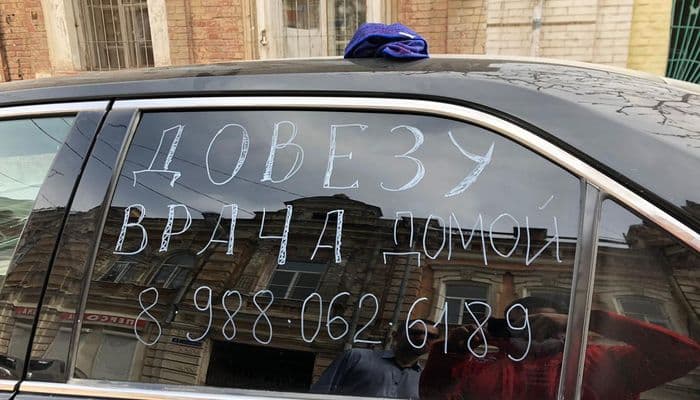 ДОВЕЗУ
ВРАЧА ДОМОЙ
8.988.062.6189